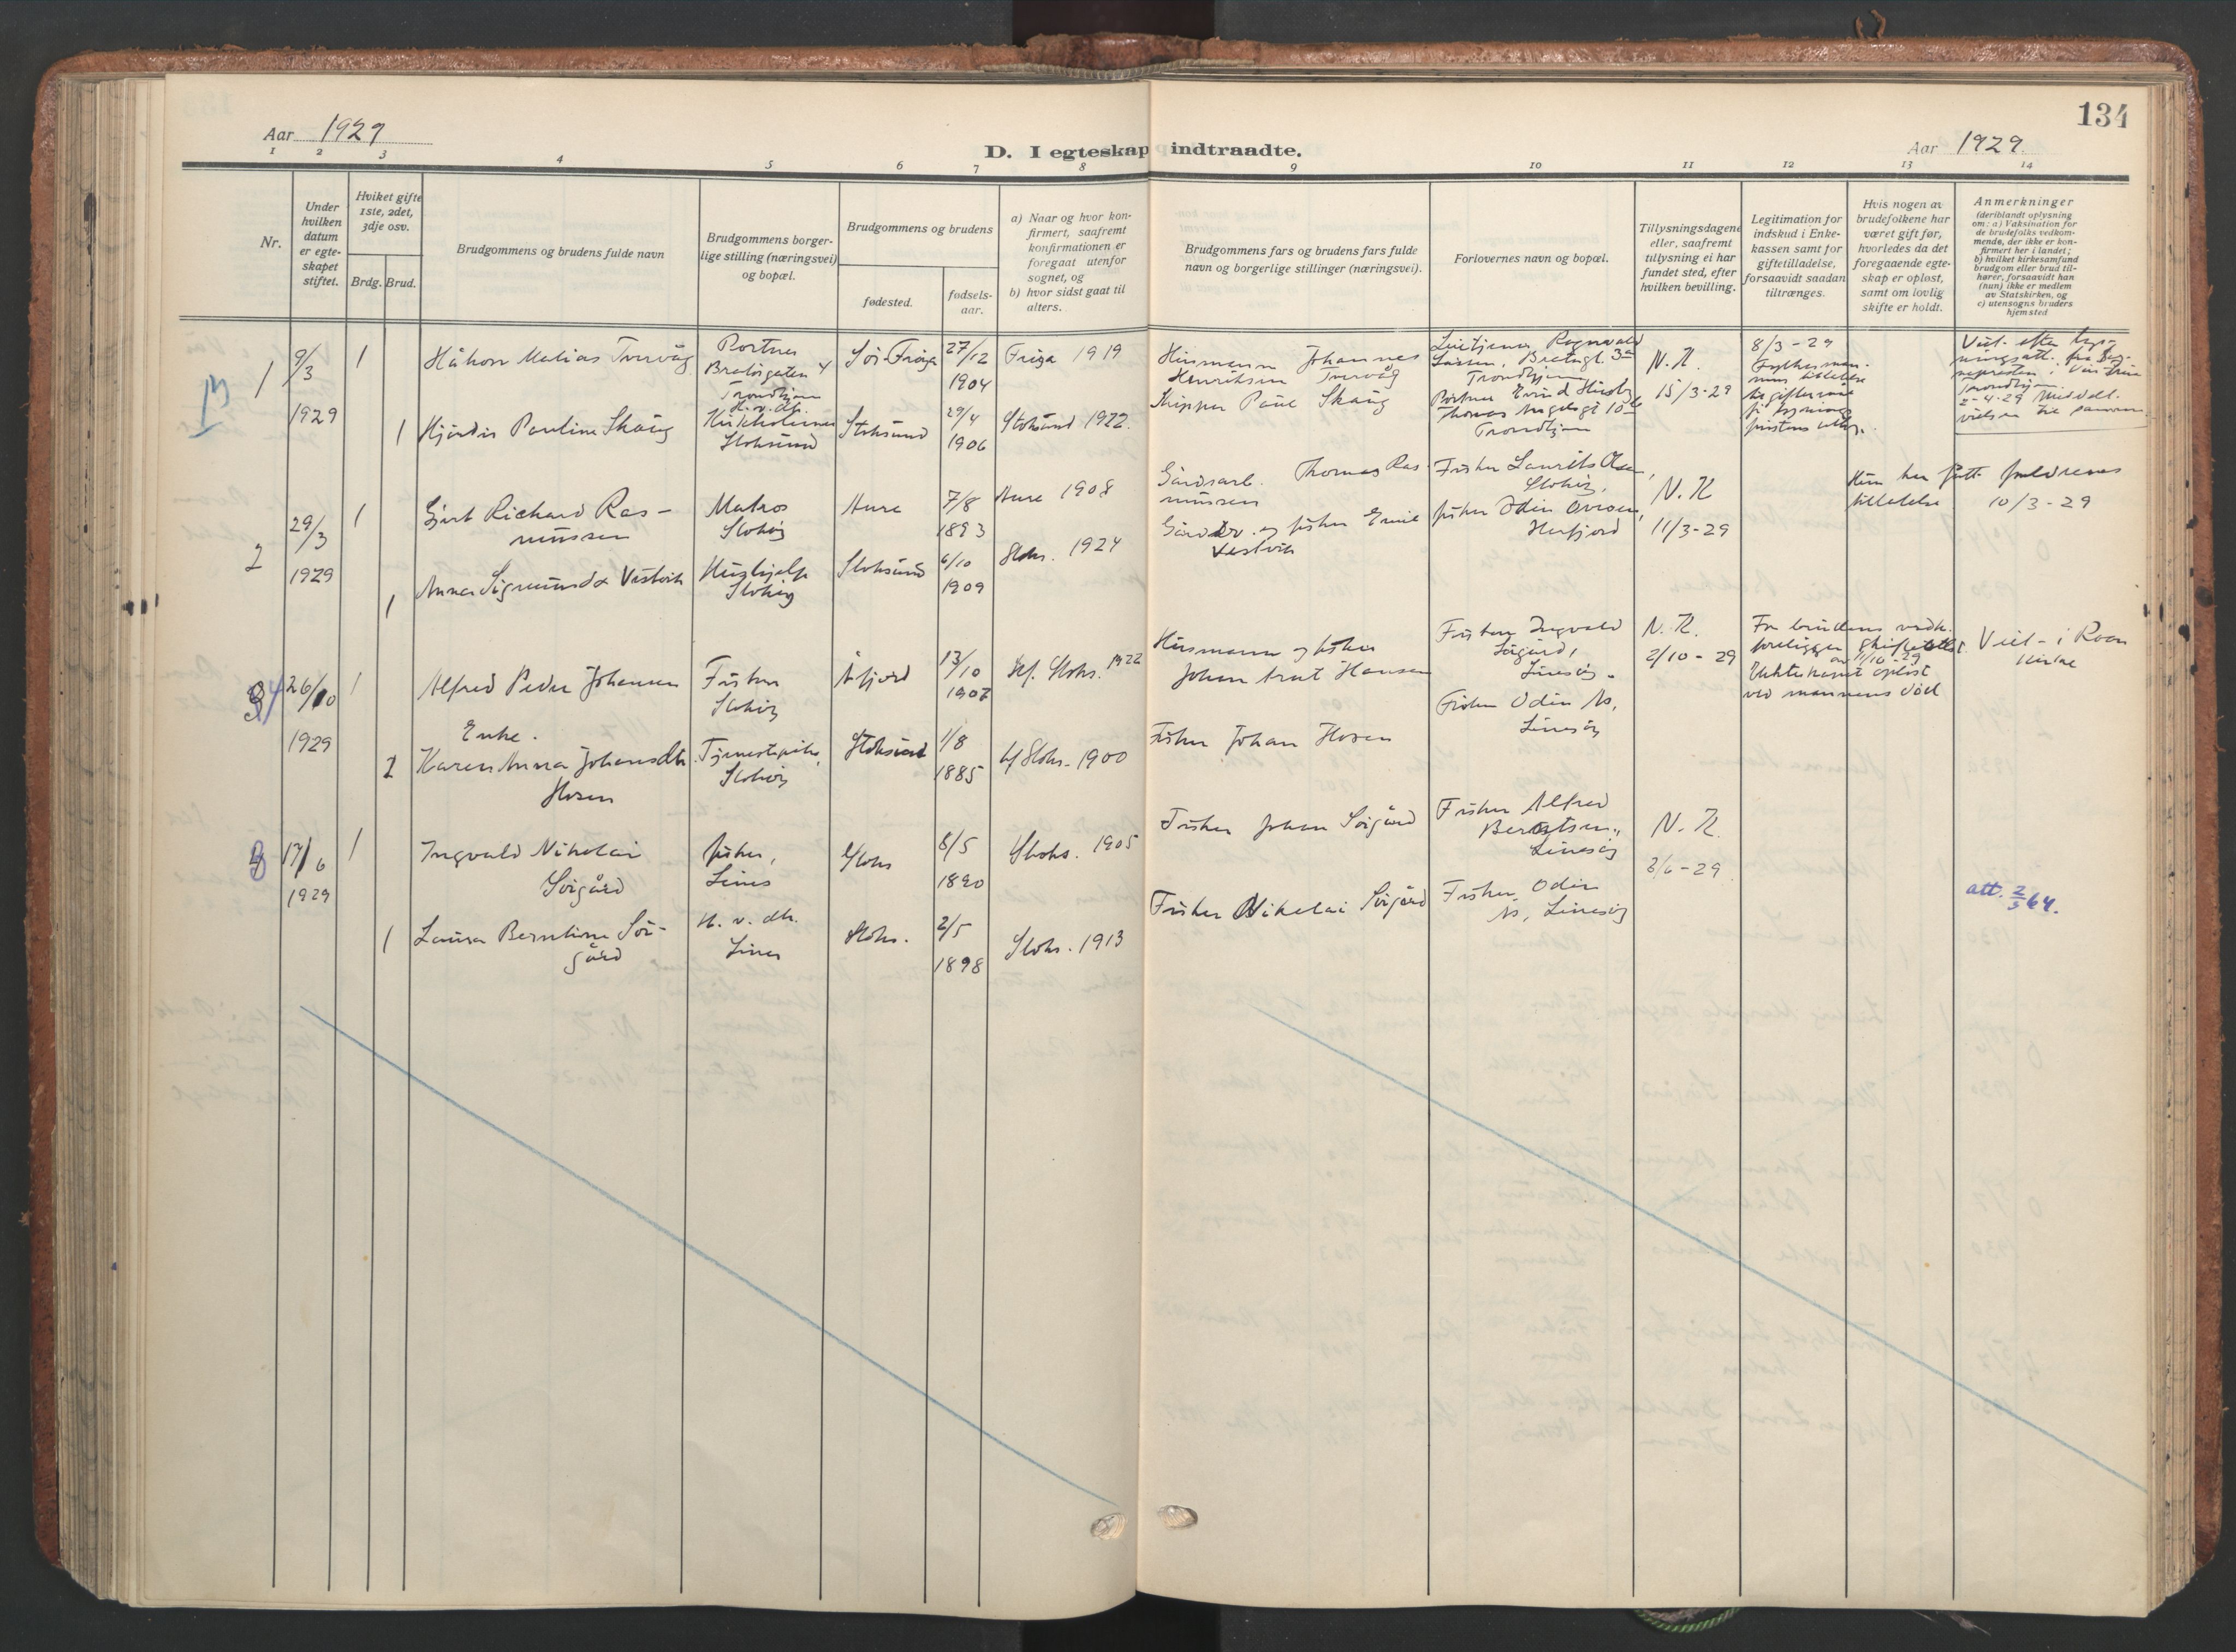 134
Aar 1929
D. I egteskap indtraadte.
Aar 1929.
1 2 3 4 5 6 7 8 9 10 11 12 13 14
Nr.
Under hvilken datum er egteskapet stiftet.
Hvilket gifte 1ste, 2det, 3dje osv.
Brdg. Brud.
Brudgommens og brudens fulde navn
Brudgommens borgerlige stilling (næringsvei) og bopæl.
Brudgommens og brudens
fødested.
fødselsaar.
a) Naar og hvor konfirmert, saafremt konfirmationen er foregaat utenfor sognet, og
b) hvor sidst gaat til alters.
Brudgommens fars og brudens fars fulde navn og borgerlige stillinger (næringsvei).
Forlovernes navn og bopæl.
Tillysningsdagene eller, saafremt tillysning ei har fundet sted, efter hvilken bevilling.
Legitimation for indskud i Enkekassen samt for giftetilladelse, forsaavidt saadan tiltrænges.
Hvis nogen av brudefolkene har været gift før, hvorledes da det foregaaende egteskap er opløst, samt om lovlig skifte er holdt.
Anmerkninger
(deriblandt oplysning om: a) Vaksination for de brudefolks vedkommende, der ikke er konfirmert her i landet; b) hvilket kirkesamfund brudgom eller brud tilhører, forsaavidt han (hun) ikke er medlem av Statskirken, og c) utensogns bruders hjemsted
1 9/3 1929
1 Håkon Matias Tvervåg
Portner
Trondhjem
Sör-Fröya
27/12 1904
Fröya 1919
Husmann Johannes Henriksen Tvervåg
Trondhjem
N.K.
15/3-29
8/3-29
1 Hjördis Pauline Skaug
H. v. dtr.
Stoksund
Stoksund
29/4 1906
Stoksund 1922.
Skipper Paul Skaug
Trondhjem
2 29/3 1929
1 Gjert Richard Rasmussen
Matros
Stoköy
Aure
7/8 1893
Aure 1908
Gårdsarb. Thomas Rasmussen
Fisker Laurits Olsen,
Stoköy,
N.K
11/3-29
Hun har fått foreldrenes
tillatelse 10/3-29
1 Anna Sigmunda Vestvik
Hushjelp
Stoköy
Stoksund
6/10 1909
Stoks. 1924
og fisker Emil
Vestvik
fisker Odin
Herfjord
26/10 1929
1 Alfred Peder Johansen
Fisker
Stoköy
Åfjord
13/10 1907
kf. Stoks. 1922
Husmann og fisker
Johan Arnt Hansen
Fisker Ingvald
Sörgård,
Linesöy.
N.K.
2/10-29
For brudens vedk.
foreligger skifteattest
av 11/10-29
Ekteskapet oplöst
ved mannens död
Viet i Roan
kirke
Enke.
2 Karen Anna Johansdtr.
Hosen
Tjenestepike,
Stoköy
Stoksund
1/8 1885
kf Stoks. 1900
Fisker Johan Hosen
Fisker Odin As,
Linesöy
17/6 1929
1 Ingvald Nikolai
Sörgård
fisker,
Lines
Stoks
8/5 1890
Stoks. 1905
Fisker Johan Sörgård
Fisker Alfred
Berntsen,
Linesöy
N.K.
3/6-29
1 Laura Berntine Sörgård
H. v. dtr.
Lines
Stoks.
2/5 1898
Stoks. 1913
Fisker Nikolai Sörgård
Fisker Odin
As, Linesöy
att. 2/5 64.